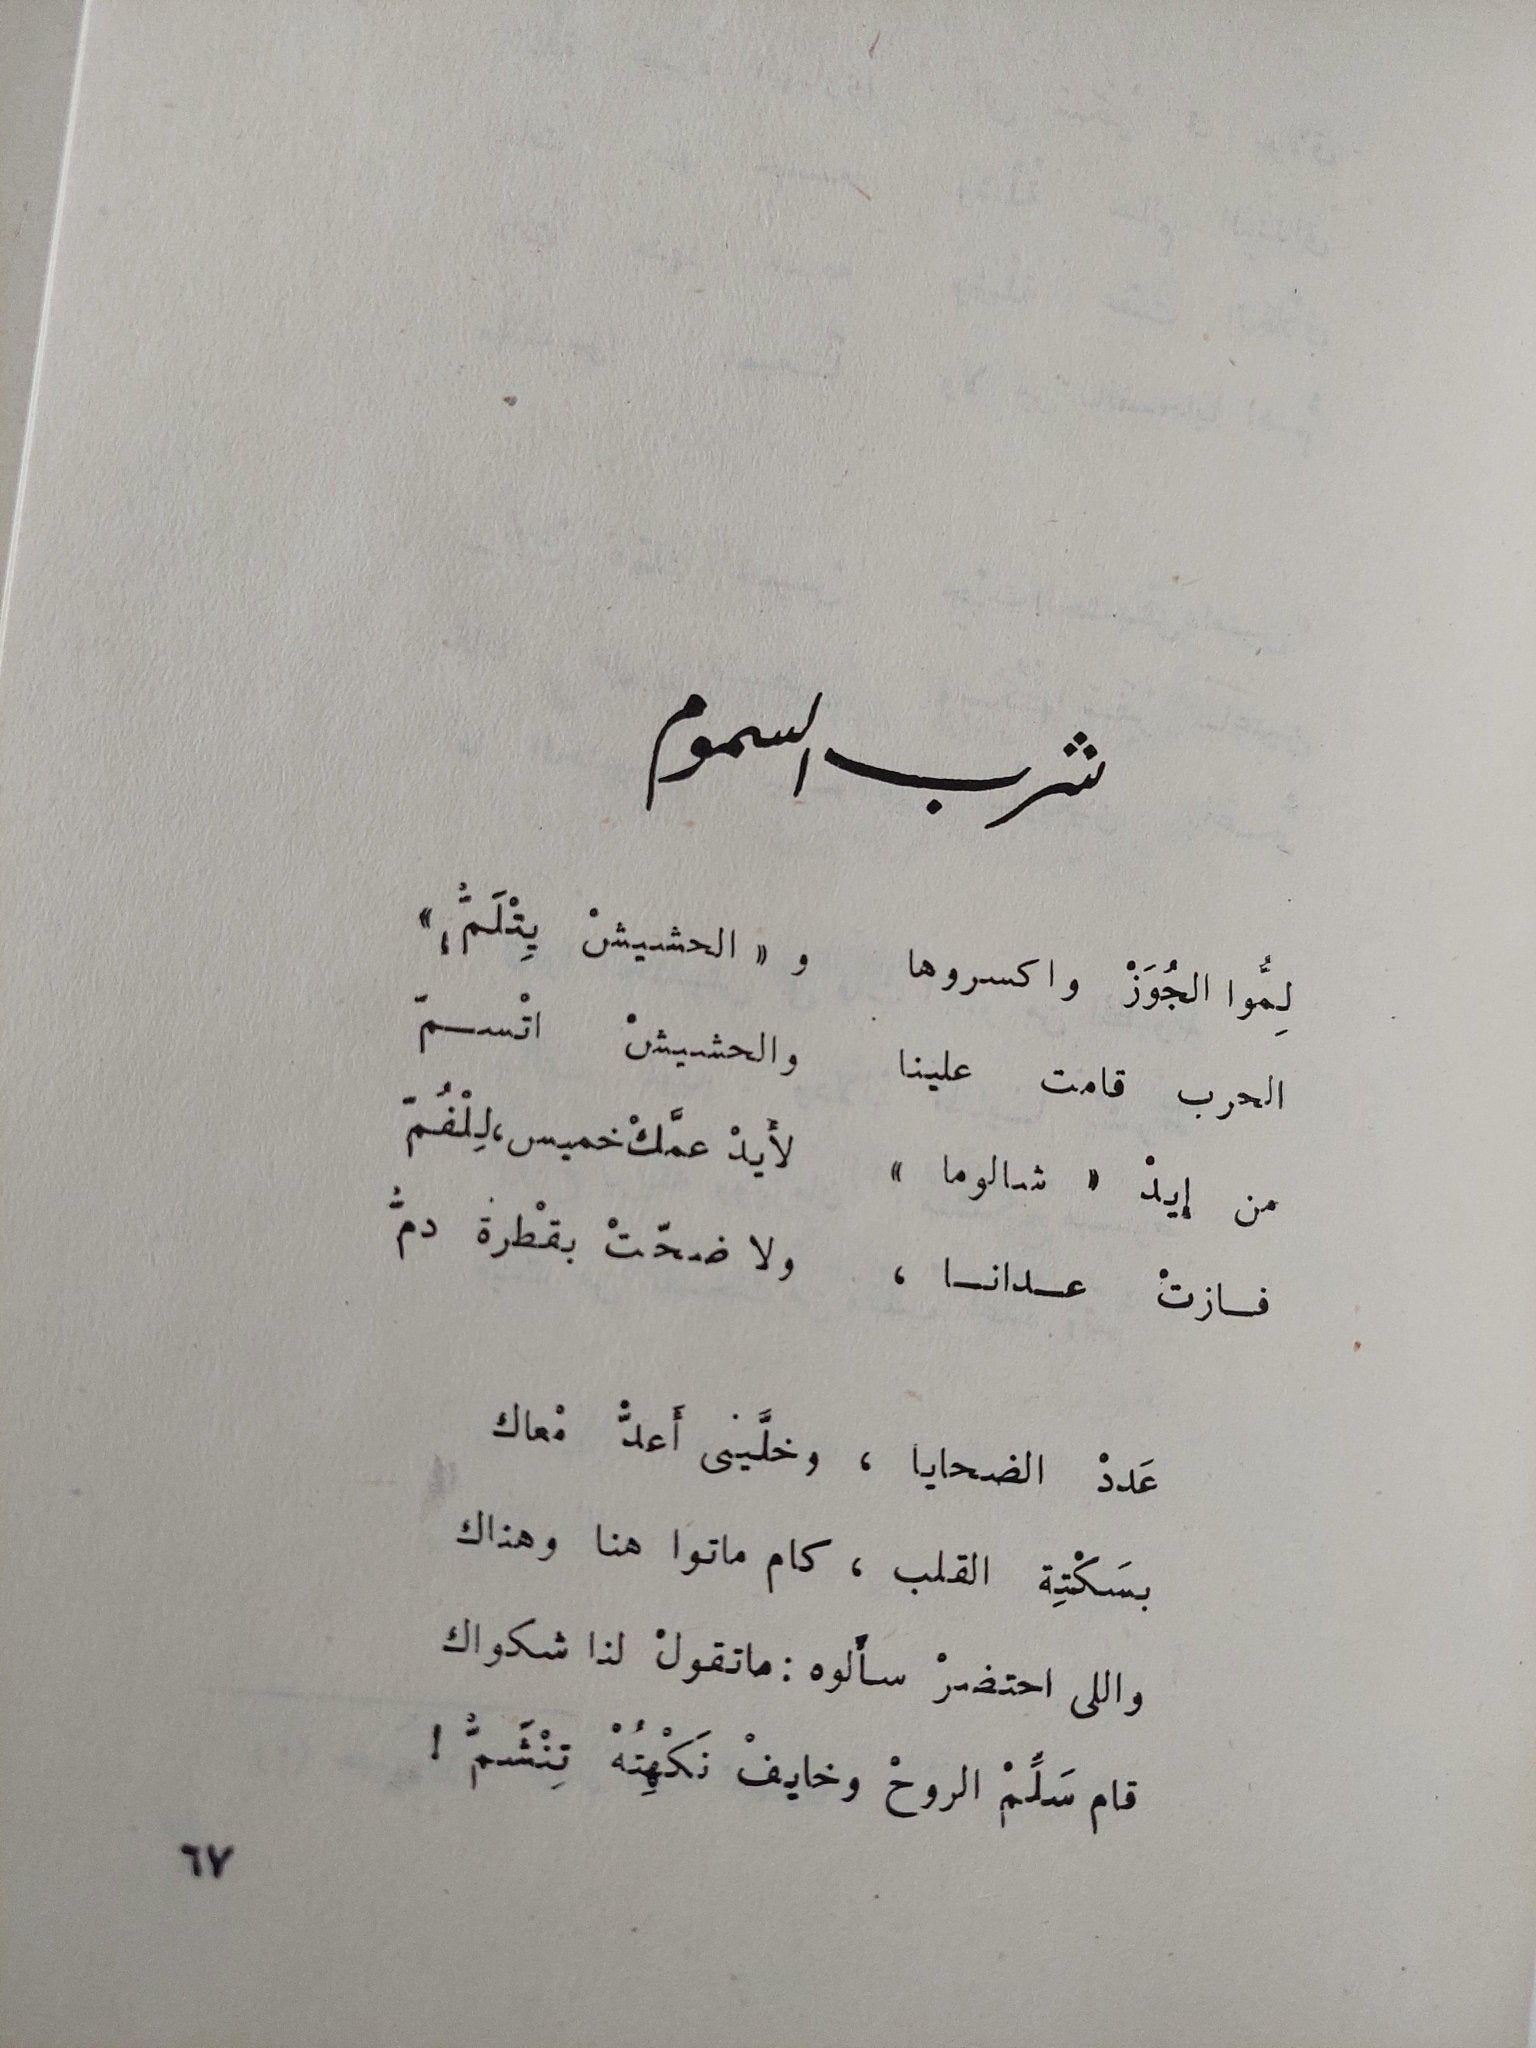 شرب السموم
لِمُّوا الجُوَزْ واكسروها و « الحشيشْ يِتْلَمُّ ، »
الحرب قامت علينا والحشيشْ اتْسـمّ
من إيدْ « شالوما » لأيدْ عمَّكْ خميس، لِلْفُمّ
فـازتْ عـدانـا ، ولا ضحّتْ بقْطرة دمُّ
عَددْ الضحايا ، وخلَّينى أَعدُّ مْعاك
بسَكْتِة القلب ، كام ماتوا هنا وهناك
واللى احتضرْ سألوه : ماتقولْ لنا شكواك
قام سَلِّمْ الروحْ وخايفْ نَكْهِتُهْ تِنْشَمُّ !
٦٧